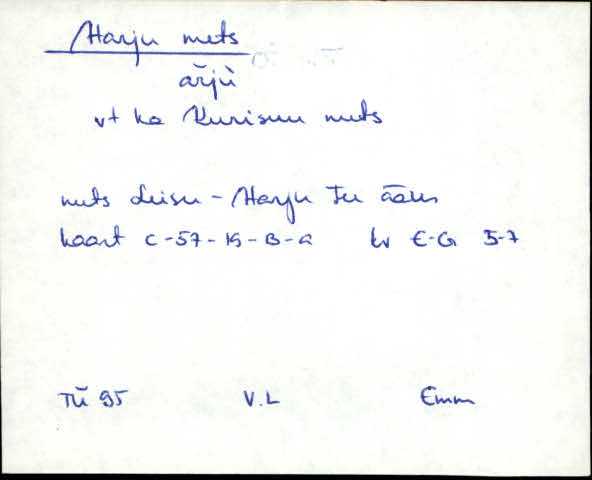 Harju mets
ar̆jù
vt ka Kurisuu mets
mets Leisu-Harju tee ääres
kaart C-57-19-B-a kv E-G 5-7
TÜ 95 V.L Emm